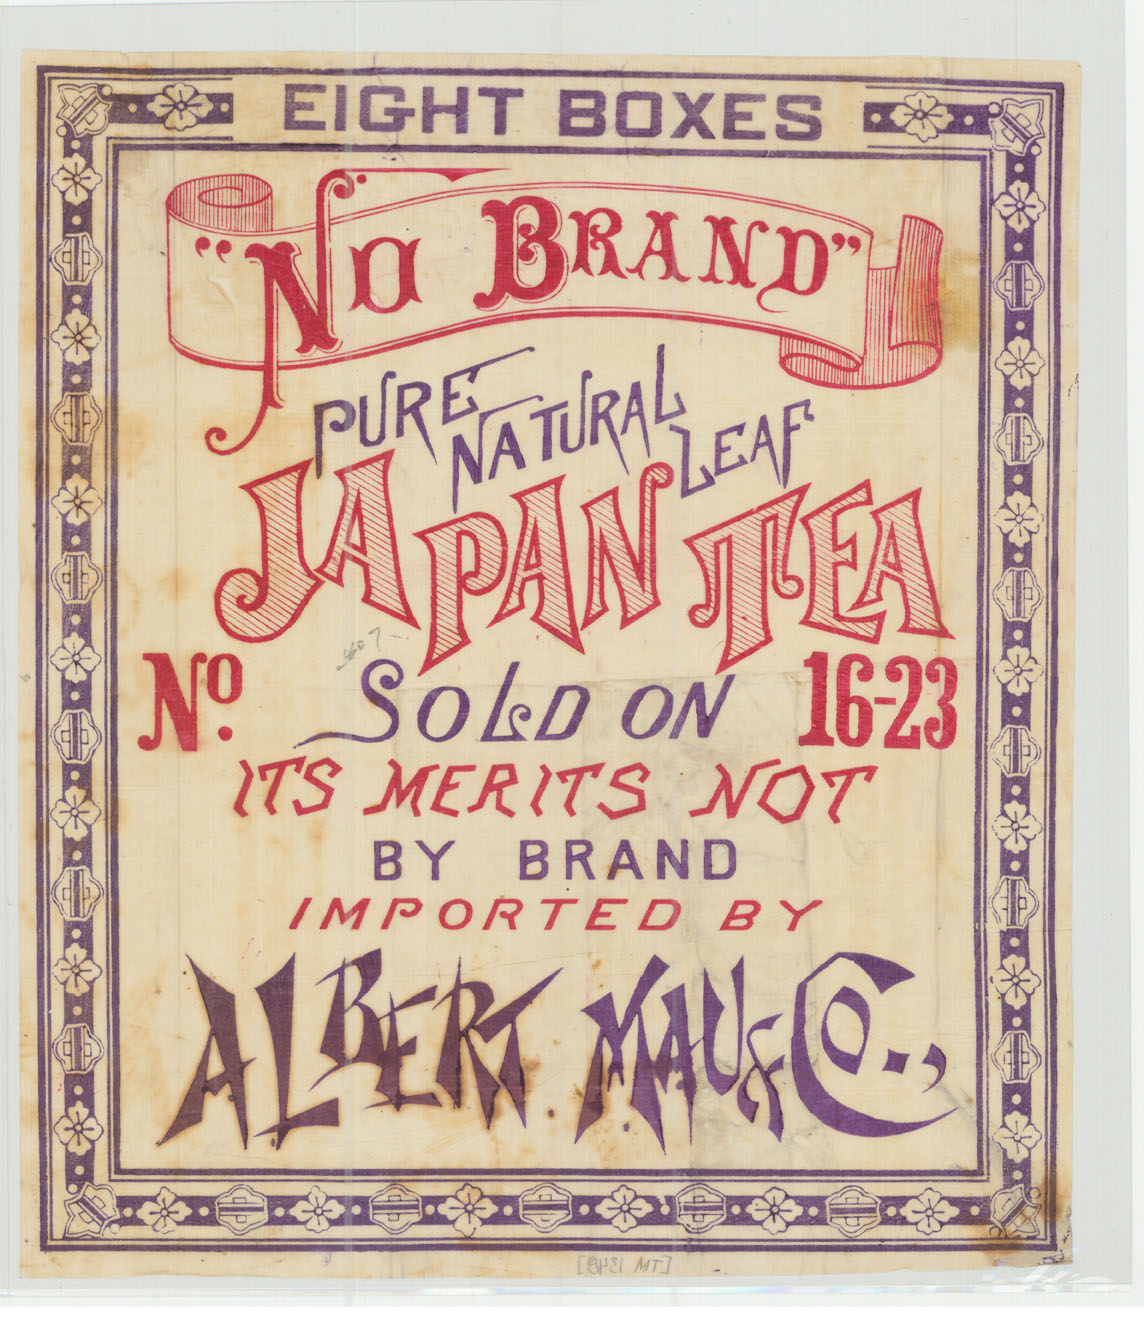 EIGHT BOXES
"No BRAND"
PURE NATURAL LEAF
JAPAN TEA
No. 16-23
SOLD ON
ITS MERITS NOT
BY BRAND
IMPORTED BY
ALBERT MAU & CO.,